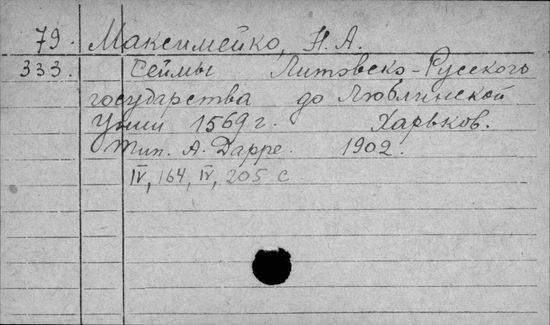 79. Максимейко, Н. А.
333. Сеймы Литовско-Русского
государства до Люблинской
Унии 1569 г. Харьков.
Тип. А. Дарре. 1902.
IV, 164, IV, 205 с.